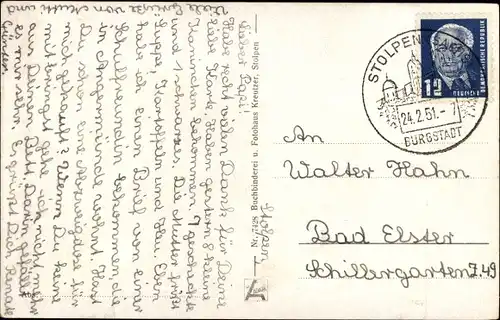 Lieber Papi!
Habe recht vielen Dank für Deine
liebe Karte. Haben gestern 8 kleine
Kaninchen bekommen 7 gescheckte
und 1 schwarzes. Die Mutter frißt
Suppe, Kartoffeln und Heu. Eben
habe ich einen Brief von einer
Schulfreundin bekommen die
in Angermünde wohnt. Hast
Du schon eine Abzeige für
mich gekauft? Wenn Du keine
mitbringst gehe ich nicht mehr
aus Deinem Bett. Darin gefällt
es mir sehr. Es grüßt Dich Renate
Viele Grüsse von Mutti und
Stolpen
Nr. 17428 Buchbinderei u. Fotohaus Kreutzer, Stolpen
STOLPEN
24.2.51.-7
BURGSTADT
12
DEUTSCHE
DEMOKRATISCHE REPUBLIK
An
Walter Hahn
Bad Elster
Schillergarten Z.49